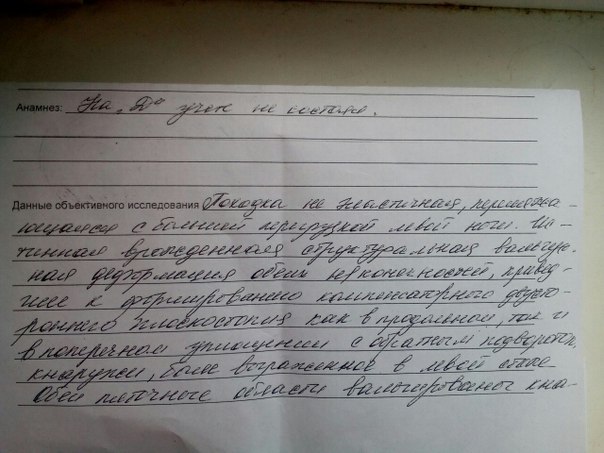 Анамнез: На „Д“ учете не состоял.
Данные объективного исследования Походка не эластичная, перемежа-
ющаяся с большей перегрузкой левой ноги. Ис-
тинная врожденная структуральная вальгус-
ная деформация обеих н/конечностей, привед-
шее к формированию компенсаторного двусто-
роннего плоскостопия как в продольном, так и
в поперечном уплощении с обратным подворотом
кнаружи, более выраженное в левой стопе
Обе пяточные области вальгированы кна-